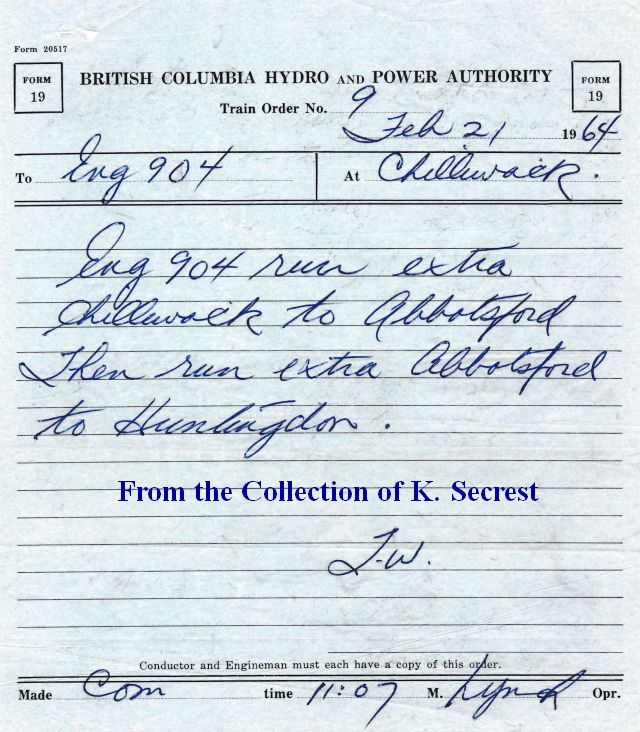 Form 20517
FORM 19
BRITISH COLUMBIA HYDRO AND POWER AUTHORITY
FORM 19
Train Order No. 9
Feb 21 1964
To Eng 904 At Chilliwack.
Eng 904 run extra
Chilliwack to Abbotsford
Then run extra Abbotsford
to Huntingdon.
From the Collection of K. Secrest
J.W.
Conductor and Engineman must each have a copy of this order.
Made Com time 11:07 M. Lynch Opr.